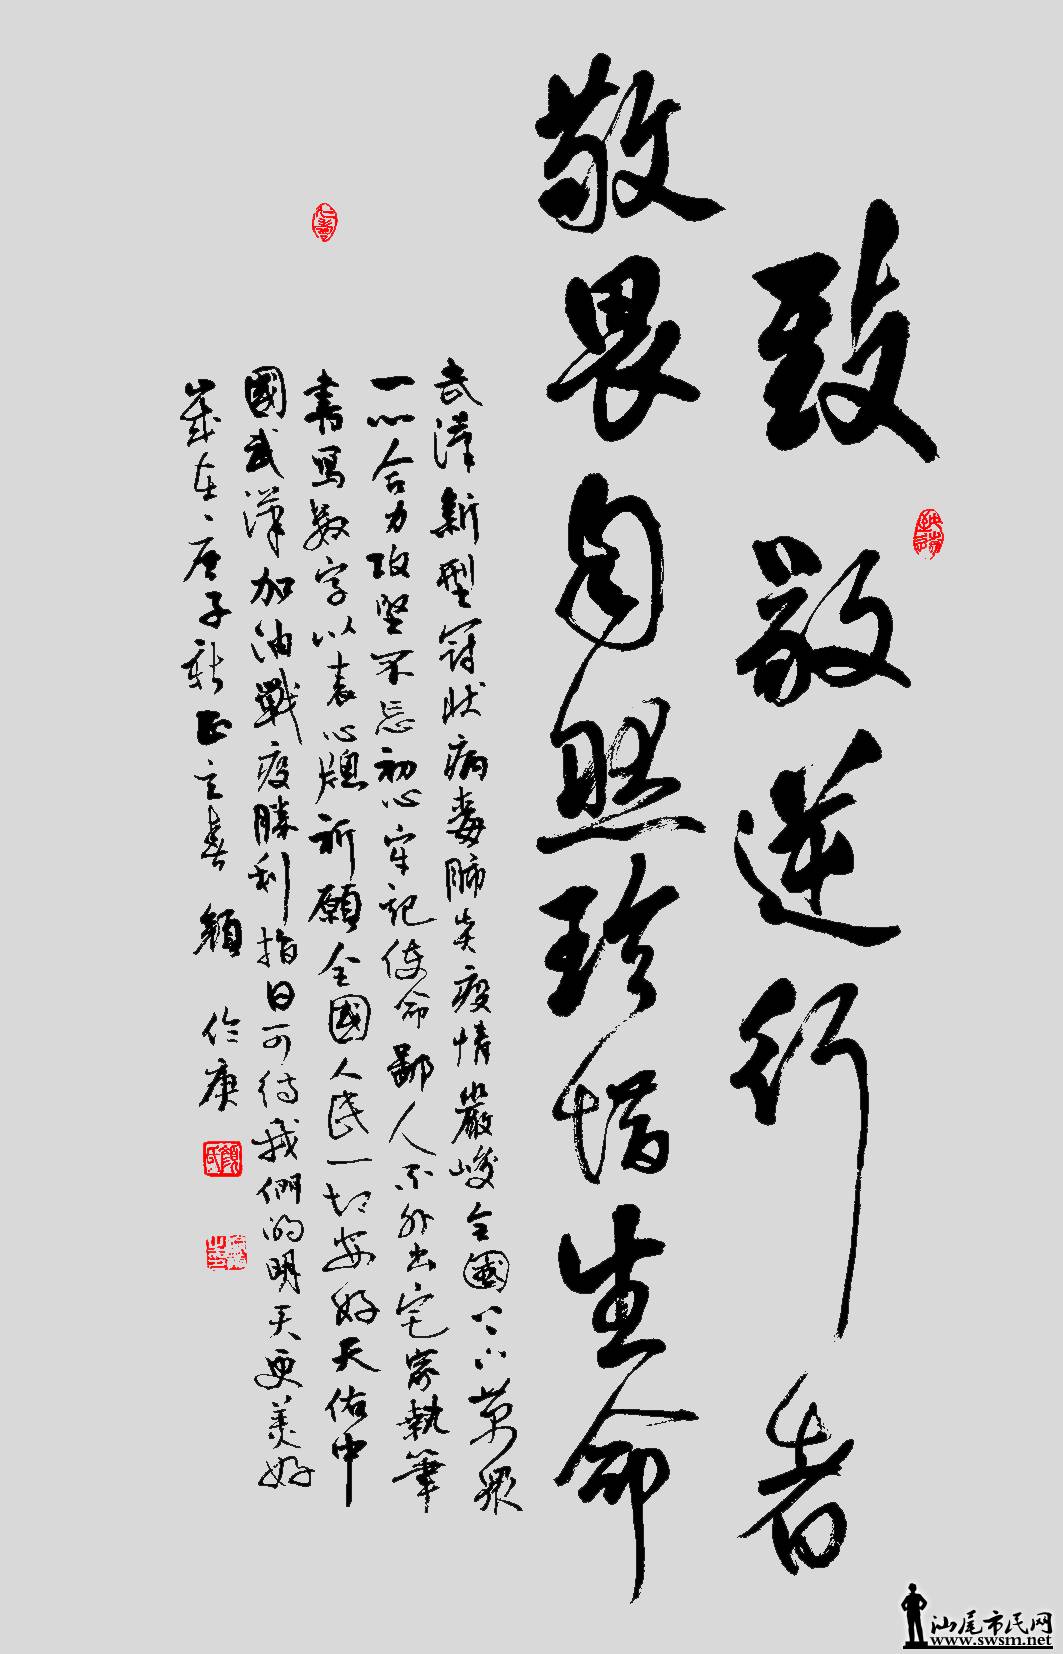 致敬逆行者
敬畏自然珍惜生命
武漢新型冠狀病毒肺炎疫情嚴峻全國上下萬眾
一心合力攻堅不忘初心牢記使命鄙人不外出宅家執筆
書寫數字以表心牕祈願全國人民一切安好天佑中
國武漢加油戰疫勝利指日可待我們的明天更美好
歲在庚子新正立春 穎 作庚
汕尾市民网
www.swsm.net